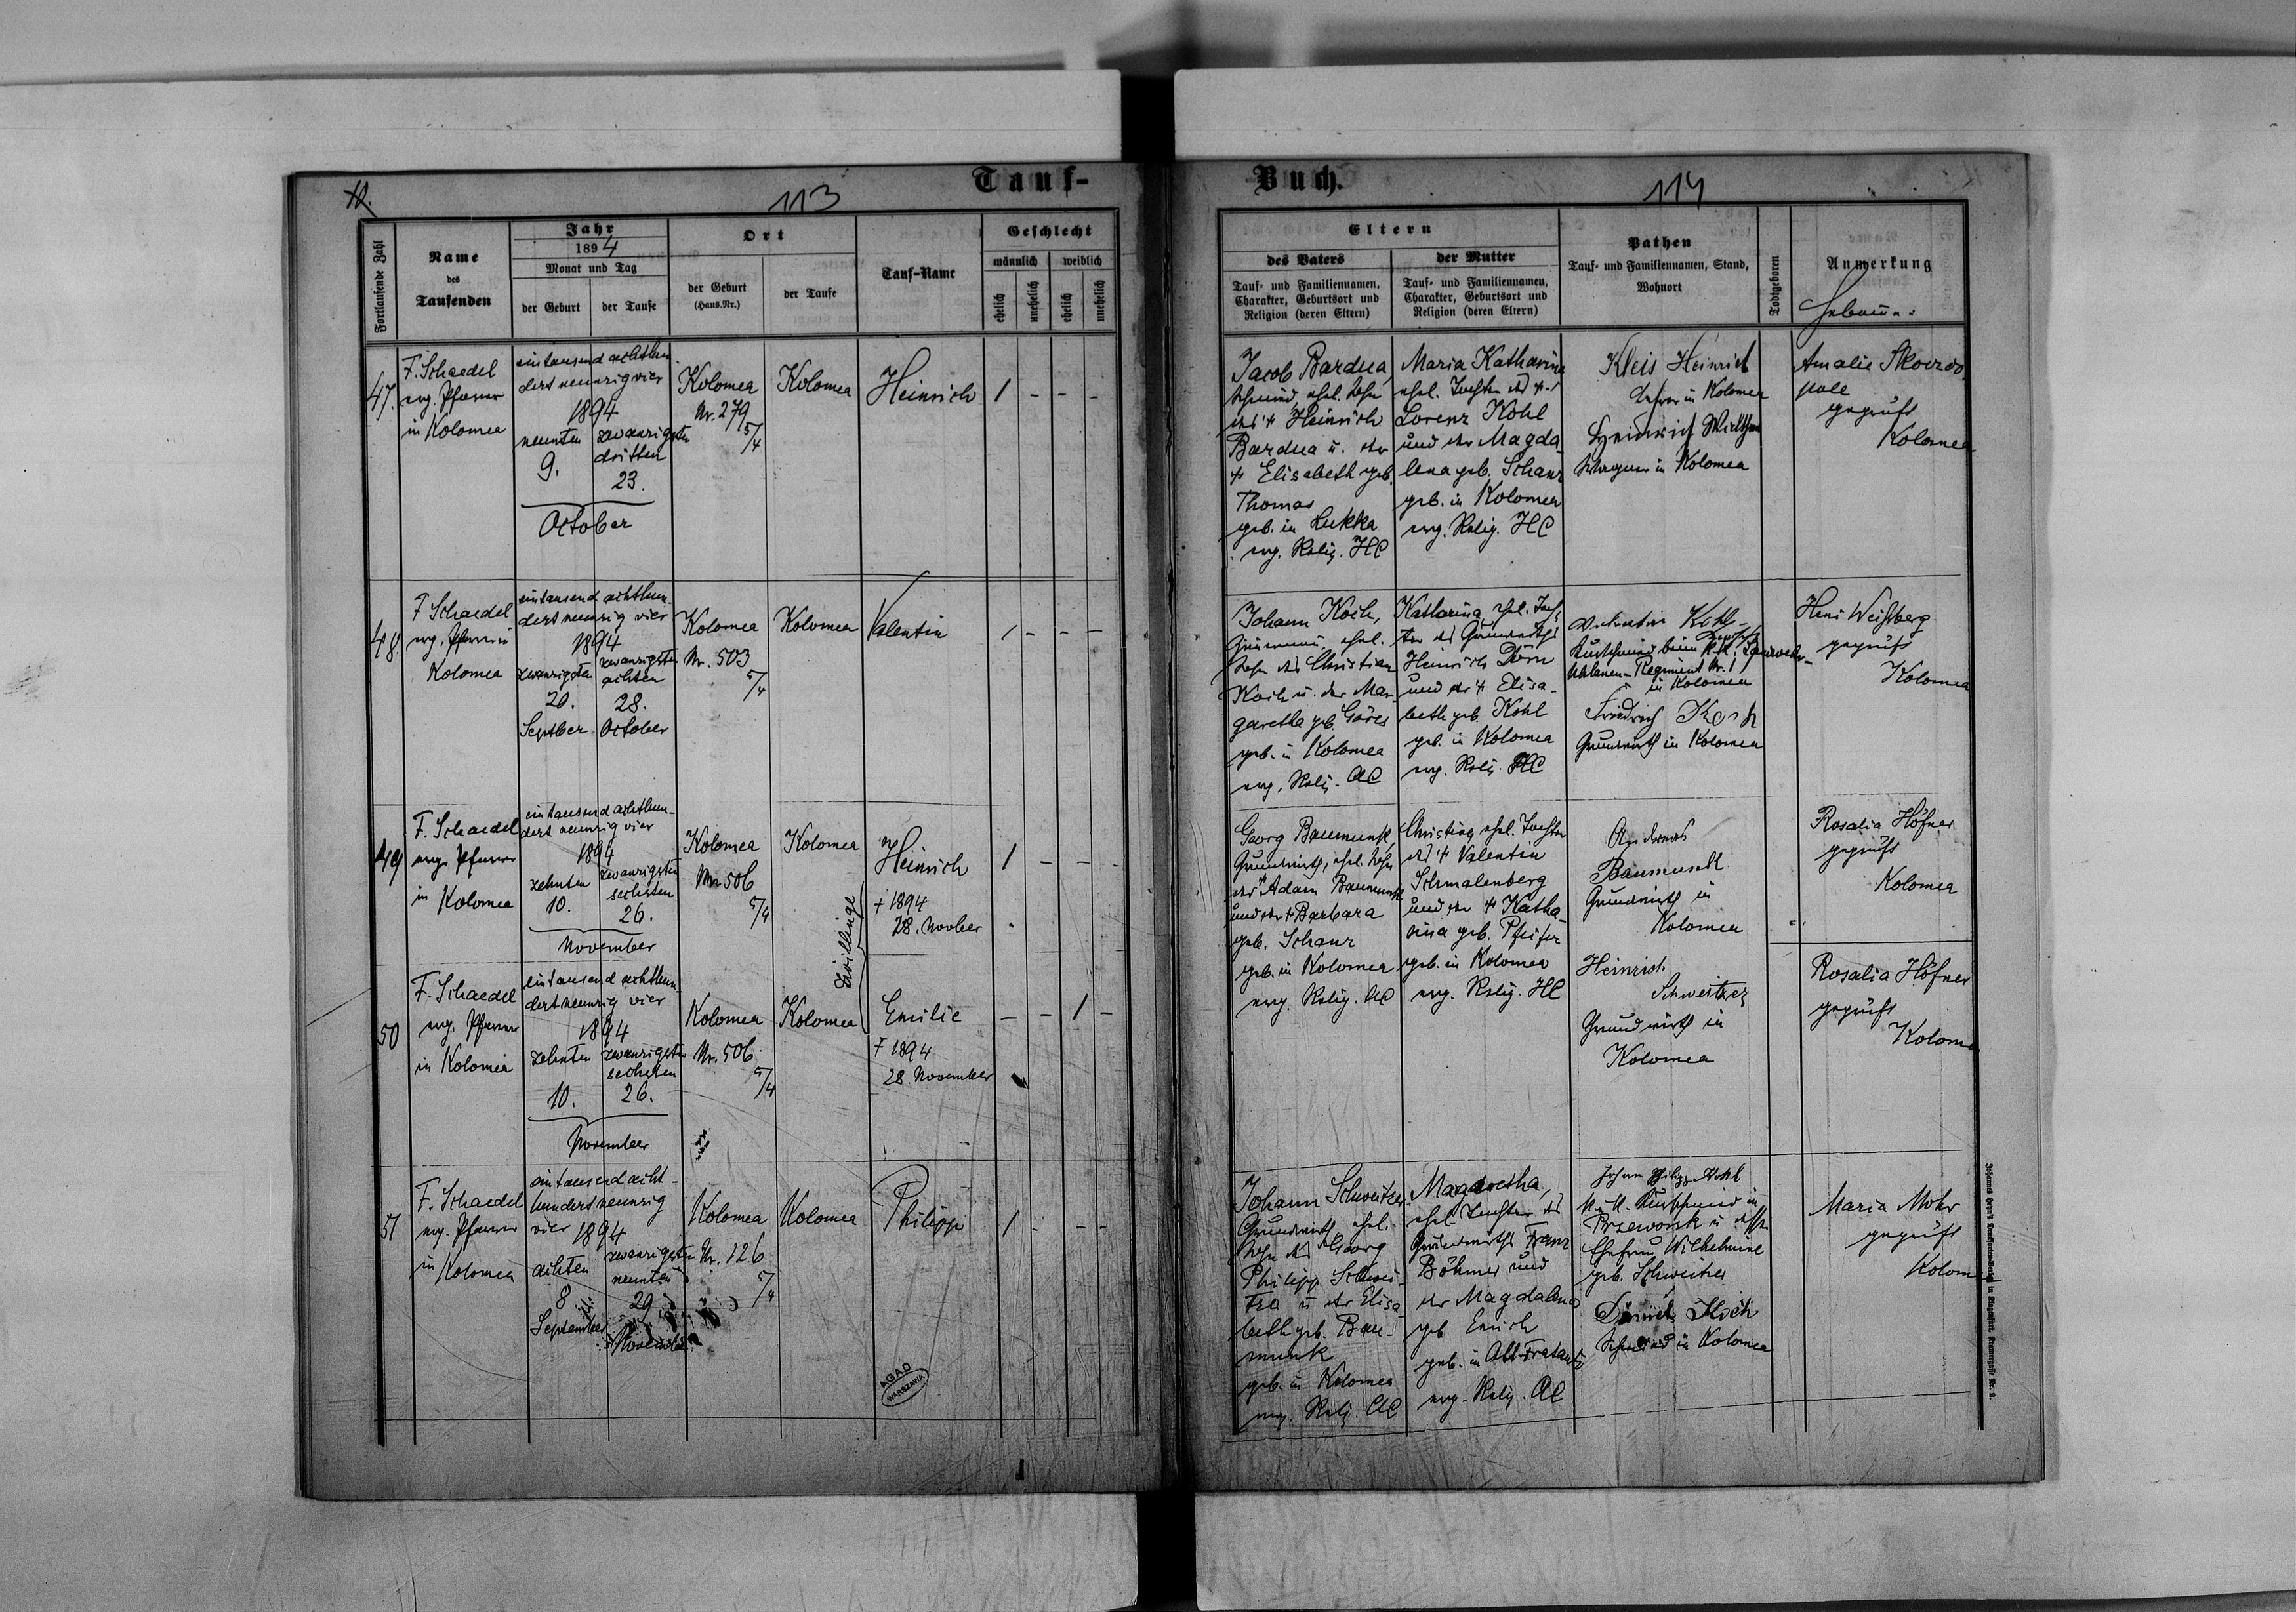 113
Tauf-
Fortlaufende Zahl
Name
des
Taufenden
Jahr
1894
Monat und Tag
der Geburt
der Taufe
Ort
der Geburt
(Haus.Nr.)
der Taufe
Tauf-Name
Geschlecht
männlich
weiblich
ehelich
unehelich
ehelich
unehelich
47.
F. Schaedel
evg. Pfarrer
in Kolomea
eintausend achthun-
dert neunzig vier
1894
neunten
9.
zwanzigsten
dritten
23.
October
Kolomea
Nr. 279
5/4
Kolomea
Heinrich
1 - - -
48.
F Schaedel
evg. Pfarrer in
Kolomea
eintausend achthun-
dert neunzig vier
1894
zwanzigsten
20.
Septber
zwanzigsten
achten
28.
October
Kolomea
Nr. 503
5/4
Kolomea
Valentin
1 - - -
49
F. Schaedel
evg. Pfarrer
in Kolomea
eintausend achthun-
dert neunzig vier
1894
zehnten
10.
zwanzigsten
sechsten
26.
November
Kolomea
Nr. 506
5/4
Kolomea
Zwillinge
Heinrich
+ 1894
28. Novber
1 - - -
50
F. Schaedel
evg. Pfarrer
in Kolomea
eintausend achthun-
dert neunzig vier
1894
zehnten
10.
zwanzigsten
sechsten
26.
November
Kolomea
Nr. 506
5/4
Kolomea
Emilie
+ 1894
28. November
- - 1 -
51
F. Schaedel
evg. Pfarrer
in Kolomea
eintausend acht-
hundert neunzig
vier 1894
achten
8
September
zwanzigsten
neunten
29
November
Kolomea
Nr. 126
5/4
Kolomea
Philipp
1 - - -
AGAD
WARSZAWA
Buch.
114
Eltern
des Vaters
Tauf- und Familiennamen,
Charakter, Geburtsort und
Religion (deren Eltern)
der Mutter
Tauf- und Familiennamen,
Charakter, Geburtsort und
Religion (deren Eltern)
Pathen
Tauf- und Familiennamen, Stand,
Wohnort
Todtgeboren
Anmerkung
Jacob Bardua,
Schmied, ehel. Sohn
des + Heinrich
Bardua u. der
+ Elisabeth geb.
Thomas
geb. in Lukka
evg. Relig. HC
Maria Katharina
ehel. Tochter des +
Lorenz Kohl
und der Magda-
lena geb. Schanz
geb. in Kolomea
evg. Relig. HC
Kleis Heinrich
Lehrer in Kolomea
Heinrich
Wagner in Kolomea
Amalie
geprüft
Kolomea
Johann Koch,
ehel.
Sohn des Christian
Koch u. der Mar-
garetha geb. Göres
geb. in Kolomea
evg. Relig. AC
Katharina ehel. Toch-
ter des Grundwirths
Heinrich Dörn
und der + Elisa-
beth geb. Kohl
geb. in Kolomea
evg. Relig. HC
Valentin Kohl
Kurschmied beim k.k. Landwehr-
Uhlanen-Regiment Nr. 1
in Kolomea
Friedrich Koch
Grundwirth in Kolomea
Heni Weissberg
geprüft
Kolomea
Georg Baumunk,
Grundwirth, ehel. Sohn
des + Adam Baumunk
und der + Barbara
geb. Schanz
geb. in Kolomea
evg. Relig. AC
Christina ehel. Tochter
des + Valentin
Schmalenberg
und der + Katha-
rina geb. Pfeifer
geb. in Kolomea
evg. Relig. HC
Andreas
Baumunk
Grundwirth in
Kolomea
Rosalia Höfner
geprüft
Kolomea
Heinrich
Schweitzer
Grundwirth in
Kolomea
Rosalia Höfner
geprüft
Kolomea
Johann Schweitzer
Grundwirth, ehel.
Sohn des Georg
Philipp Schwei-
tzer u der Elisa-
beth geb. Bau-
munk
geb. in Kolomea
evg. Relig. AC
Magaretha,
ehel. Tochter des
Grundwirths Franz
Böhmer und
der Magdalena
geb. Emich
geb. in Alt-Fratautz
evg. Relig. AC
Johann Philipp
k. u. k. Kurschmied in
Przeworsk u. dessen
Ehefrau Wilhelmine
geb. Schweitzer
Koch
Schmied in Kolomea
Maria Mohr
geprüft
Kolomea